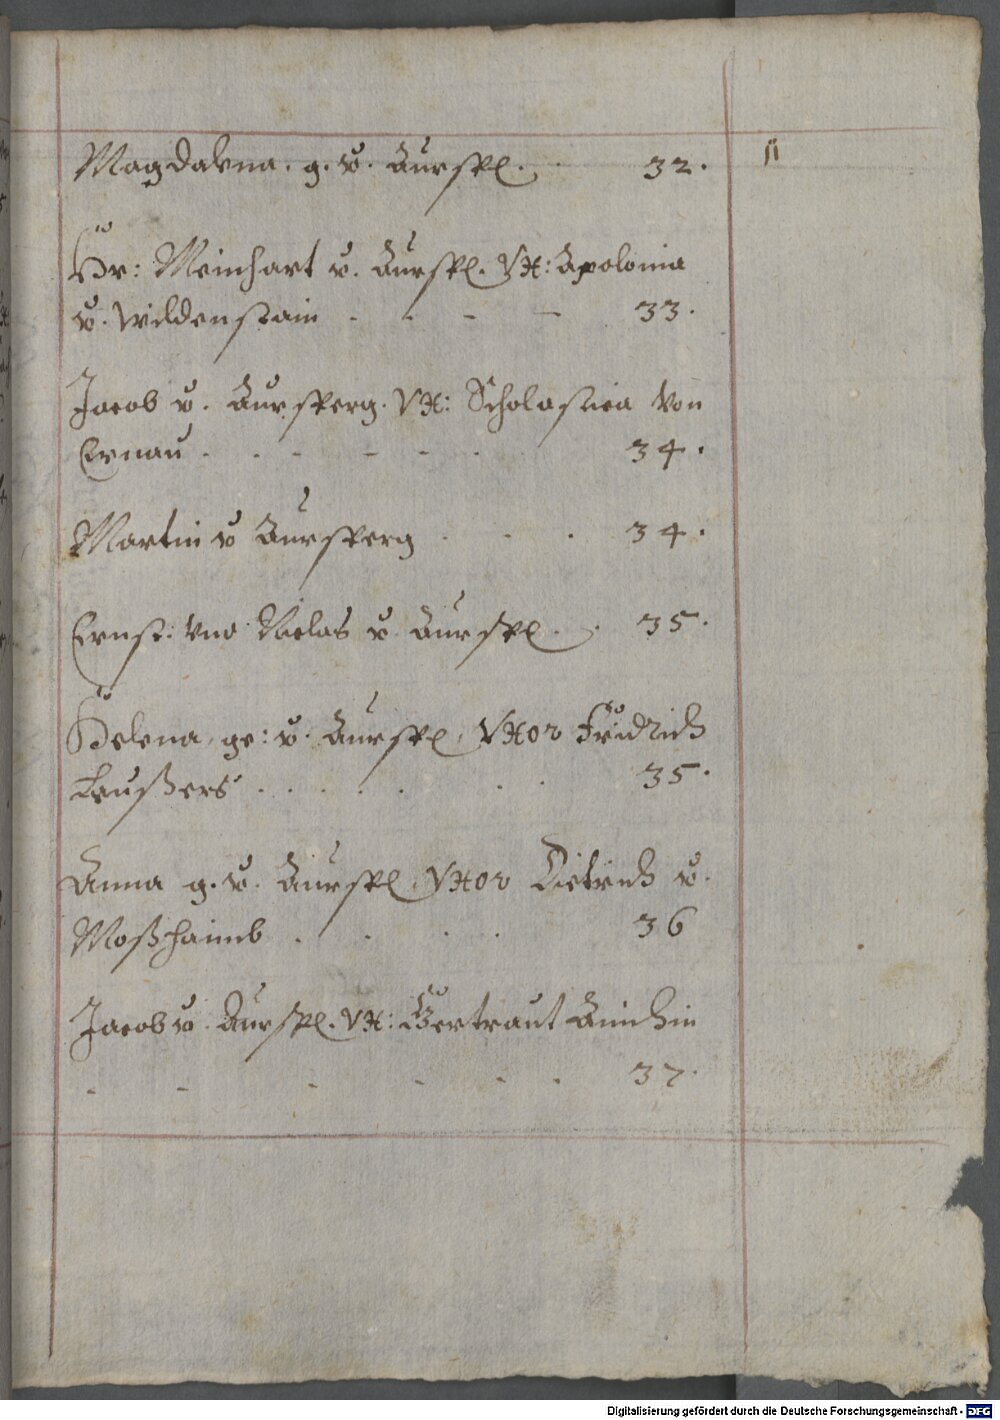 Magdalena. g. v. Aurspl. . 32. 11
Hr: Meinhart v. Aurspl. VH: Apolonia
v. Wildenstain - - - - 33.
Jacob v. Aursperg. VH: Scholastica Von
Ernau . . - - - . 34.
Martin v Aursperg . . . 34.
Ernst: Vnd Niclas v. Aurspl . . 35.
Helena, ge: v. Aurspl, VHor Fridrich
. . . . . . 35.
Anna g. v. Aurspl. VHor Dietrich v.
Moßhaimb . . . . 36
Jacob v. Aurspl. VH: Gertraut
- - - - - . 37.
Digitalisierung gefördert durch die Deutsche Forschungsgemeinschaft - DFG